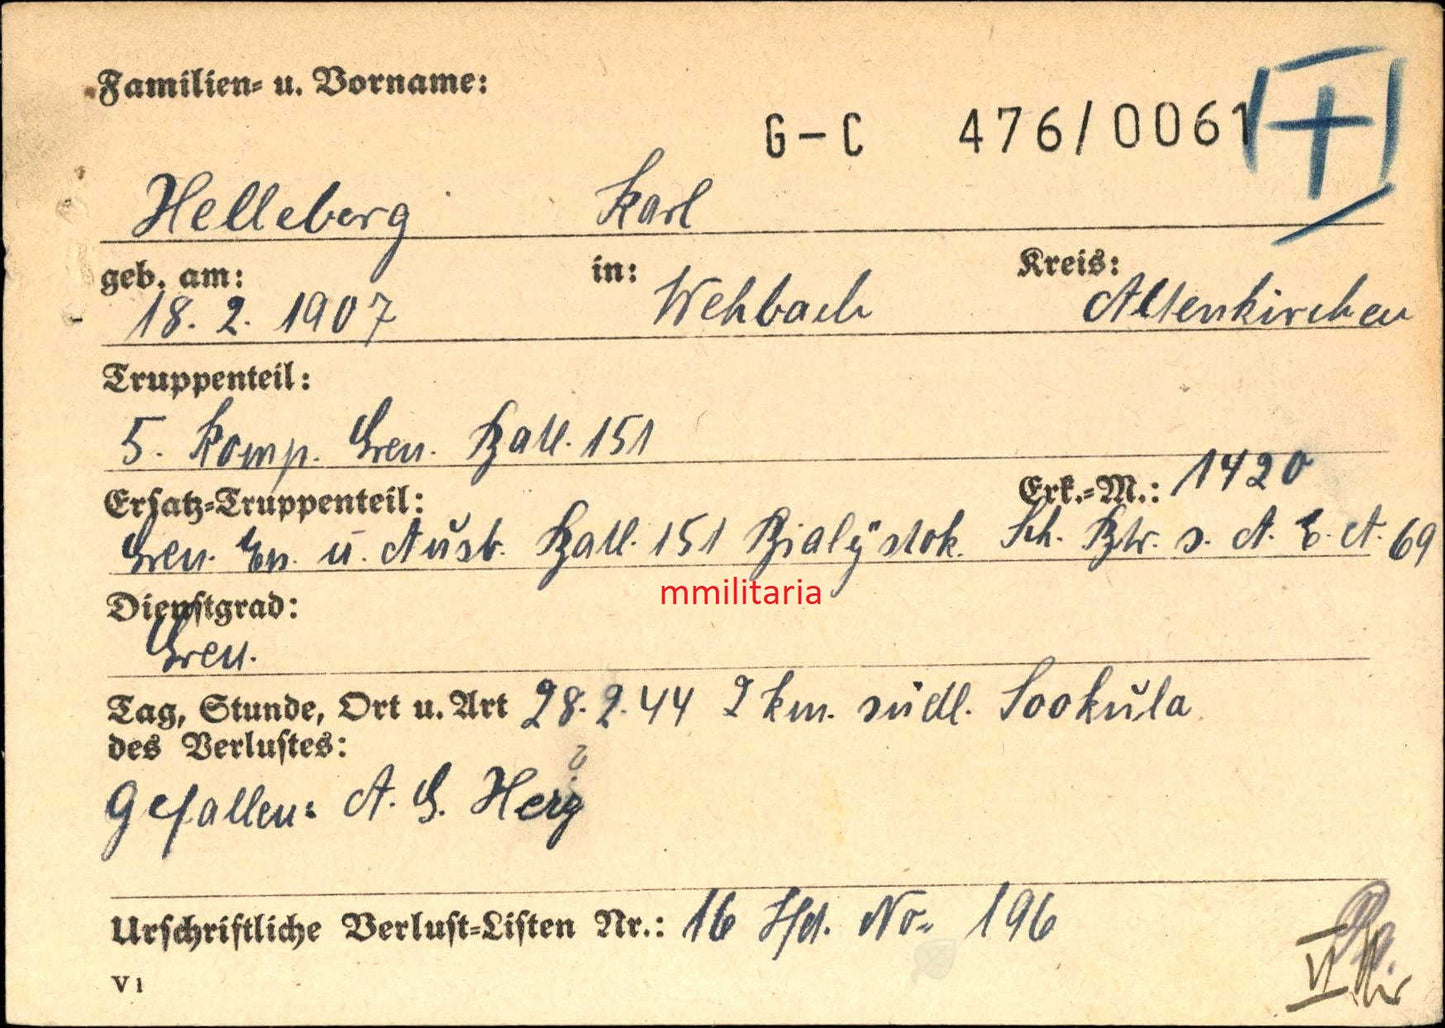 Familien- u. Vorname:
G-C 476/0061
Helleberg Karl
geb. am: in: Kreis:
18. 2. 1907 Wehbach Altenkirchen
Truppenteil:
5. Komp. Gren. Batl. 151
Ersatz-Truppenteil: Erk.-M.: 1420
Gren. Ers. u. Ausb. Batl. 151 Bialystok. Sch. Bttr. s. A. E. A. 69
mmilitaria
Dienstgrad:
Gren.
Tag, Stunde, Ort u. Art 28. 2. 44 2 km. südl. Sookula
des Verlustes:
?
Gefallen: A. G. Herz
Urschriftliche Verlust-Listen Nr.: 16 lfd. No. 196
V 1
VI